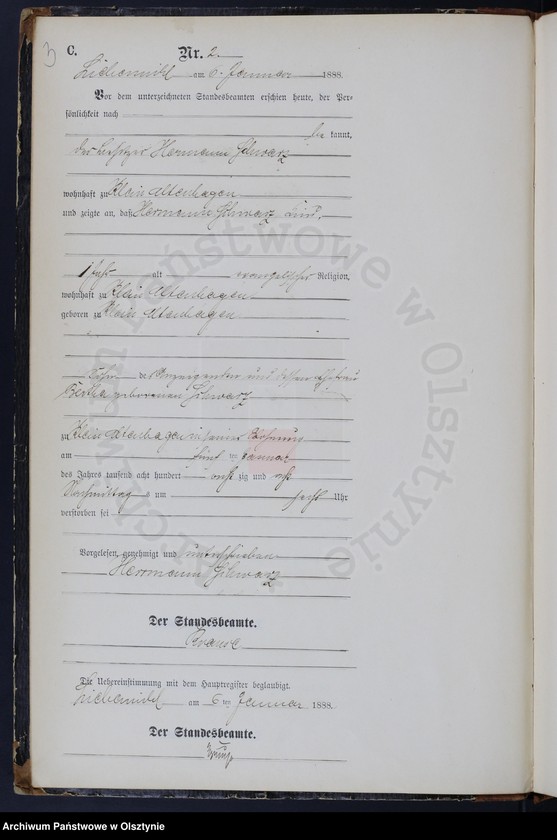 3
C.
Nr. 2.
Liebemühl am 6. Januar 1888.
Vor dem unterzeichneten Standesbeamten erschien heute, der Per-
sönlichkeit nach
be kannt,
der Besitzer Hermann Schwarz
wohnhaft zu Klein Altenhagen
und zeigte an, daß Hermann Schwarz Kind.
1 Jahr alt evangelischer Religion,
wohnhaft zu Klein Altenhagen
geboren zu Klein Altenhagen
Sohn des Anzeigenden und dessen Ehefrau
Bertha geborenen Schwarz
zu Klein Altenhagen in seiner Wohnung
am fünften Januar
des Jahres tausend acht hundert acht zig und acht
Vormittags um sechs Uhr
verstorben sei
Vorgelesen, genehmigt und unterschrieben
Herrmann Schwarz
Der Standesbeamte.
Die Uebereinstimmung mit dem Hauptregister beglaubigt.
Liebemühl am 6ten Januar 1888.
Der Standesbeamte.
Archiwum Państwowe w Olsztynie
Archiwum Państwowe w Olsztynie